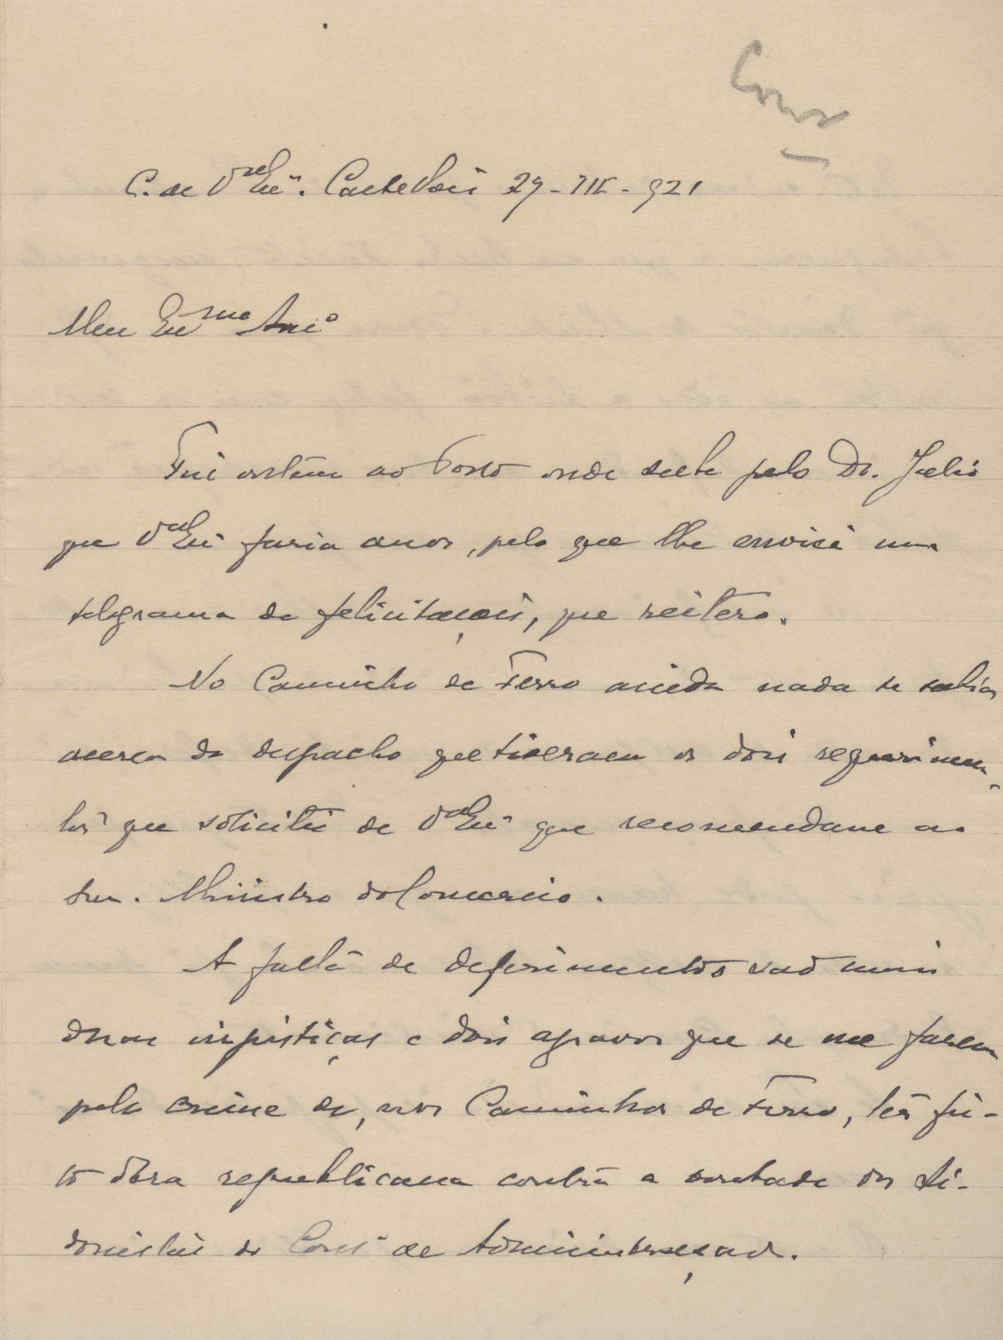 C. de V.ª Exª. 29-III-921
Meu Exmo Amº
Fui ontem ao Porto onde soube pelo Dr. Julio
que V.ª Exª fazia anos, pelo que lhe enviei um
telegrama de felicitações, que reitero.
No Caminho de Ferro ainda nada se sabia
acerca do despacho que tiveram os dois requerimen-
tos que solicitei de V.ª Exª que recomendasse ao
Snr. Ministro do Comercio.
A falta de deferimentos são mais
duas injustiças e dois agravos que se me fazem
pelo crime de, nos Caminhos de Ferro, ter fei-
to obra republicana contra a vontade dos si-
donistas do Consº de Administração.